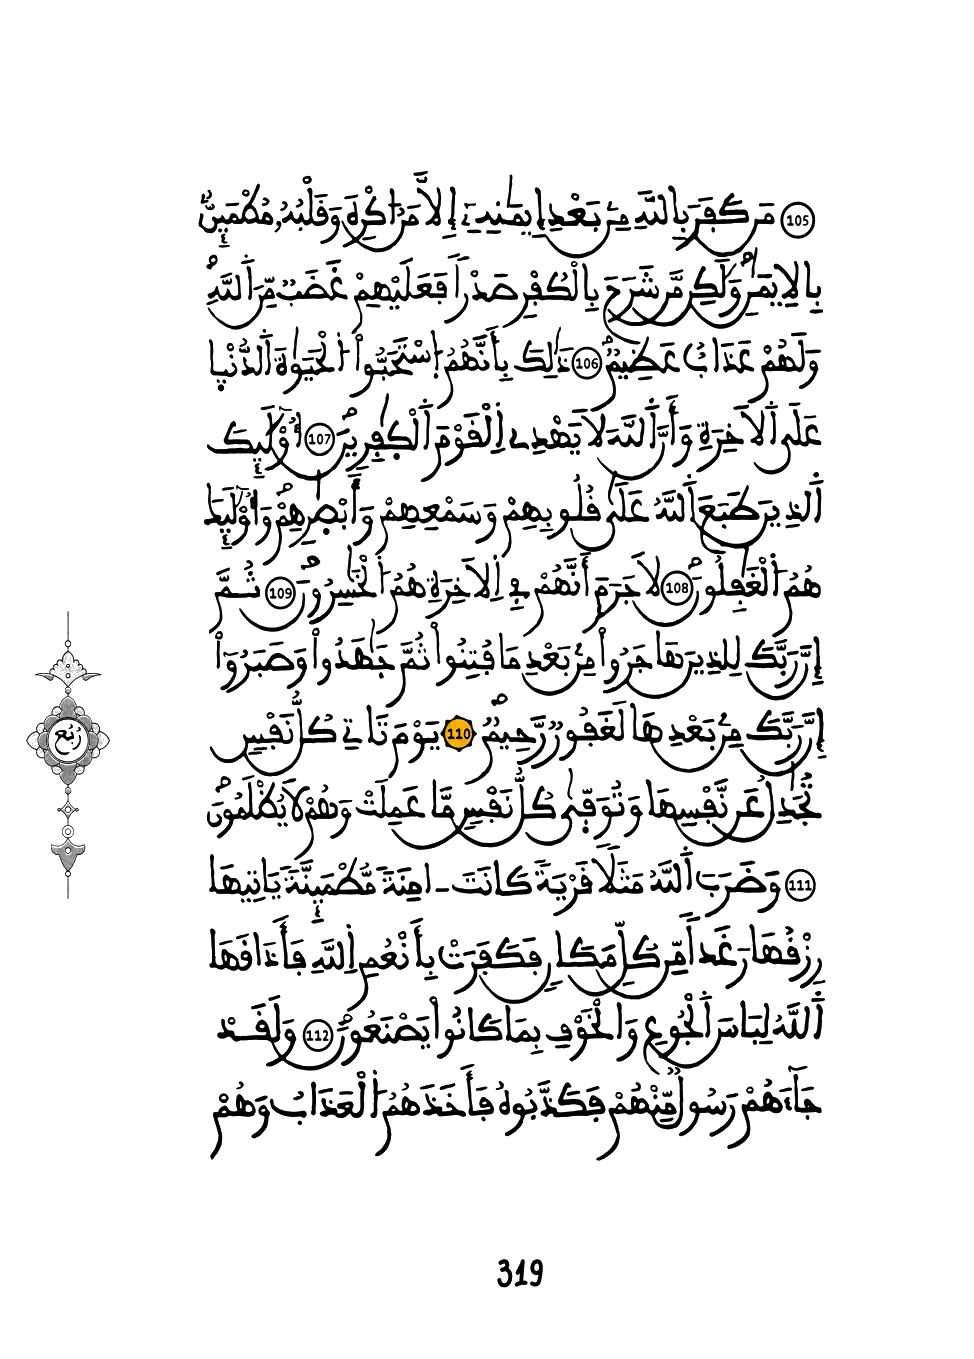 105 مَن كَفَرَ بِاللَّهِ مِنۢ بَعْدِ إِيمَٰنِهِۦٓ إِلَّا مَنُ ا۟كْرِهَ وَقَلْبُهُۥ مُطْمَئِنٌّۢ
بِالِايمَٰنِ وَلَٰكِن مَّن شَرَحَ بِالْكُفْرِ صَدْراً فَعَلَيْهِمْ غَضَبٌ مِّنَ اَللَّهِ
وَلَهُمْ عَذَابٌ عَظِيمٌ 106 ذَٰلِكَ بِأَنَّهُمُ اُ۪سْتَحَبُّوا۟ اُ۬لْحَيَوٰةَ اَ۬لدُّنْي۪ا
عَلَى اَ۬لَاخِرَةِ وَأَنَّ اَ۬للَّهَ لَا يَهْدِے اِ۬لْقَوْمَ اَ۬لْكٰ۪فِرِينَ 107 أُوْلَٰٓئِكَ
اَ۬لذِينَ طَبَعَ اَ۬للَّهُ عَلَىٰ قُلُوبِهِمْ وَسَمْعِهِمْ وَأَبْصٰ۪رِهِمْ وَأُوْلَٰٓئِكَ
هُمُ اُ۬لْغَٰفِلُونَ 108 لَا جَرَمَ أَنَّهُمْ فِے اِ۬لَاخِرَةِ هُمُ اُ۬لْخَٰسِرُونَ 109 ثُمَّ
إِنَّ رَبَّكَ لِلذِينَ هَاجَرُوا۟ مِنۢ بَعْدِ مَا فُتِنُوا۟ ثُمَّ جَٰهَدُوا۟ وَصَبَرُوٓا۟
إِنَّ رَبَّكَ مِنۢ بَعْدِهَا لَغَفُورٌ رَّحِيمٌ 110 يَوْمَ تَاتِے كُلُّ نَفْسٍ
تُجَٰدِلُ عَن نَّفْسِهَا وَتُوَفّ۪ىٰ كُلُّ نَفْسٍ مَّا عَمِلَتْ وَهُمْ لَا يُظْلَمُونَ
111 وَضَرَبَ اَ۬للَّهُ مَثَلاً قَرْيَةً كَانَتَ ـ امِنَةً مُّطْمَئِنَّةً يَاتِيهَا
رِزْقُهَا رَغَداً مِّن كُلِّ مَكَانٍ فَكَفَرَتْ بِأَنْعُمِ اِ۬للَّهِ فَأَذَٰقَهَا
اَ۬للَّهُ لِبَاسَ اَ۬لْجُوعِ وَالْخَوْفِ بِمَا كَانُوا۟ يَصْنَعُونَ 112 وَلَقَدْ
جَآءَهُمْ رَسُولٌ مِّنْهُمْ فَكَذَّبُوهُ فَأَخَذَهُمُ اُ۬لْعَذَابُ وَهُمْ
رُبُع
319